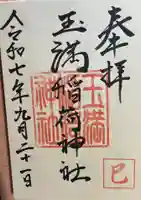 奉拝
玉満稲荷神社
玉満
神社
令和七年九月二十一日
巳